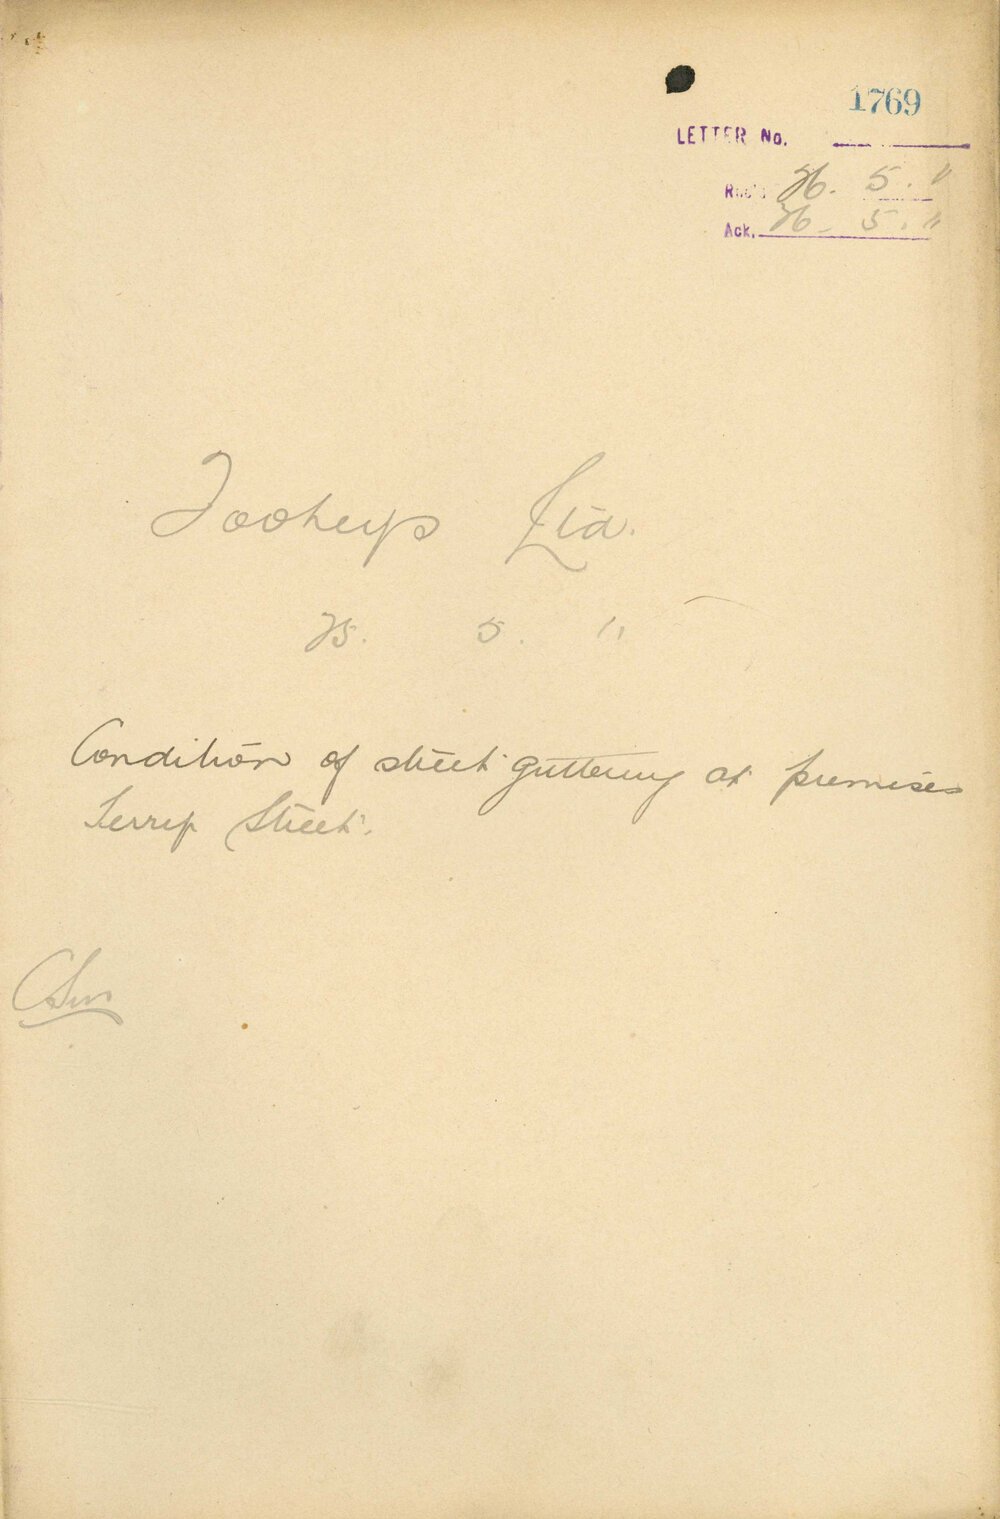 1769
LETTER No.
Rec'd 26. 5. 11
Ack. 26. 5. 11
Tooheys Ltd.
25. 5. 11
Condition of street guttering at premises
Terry Street.